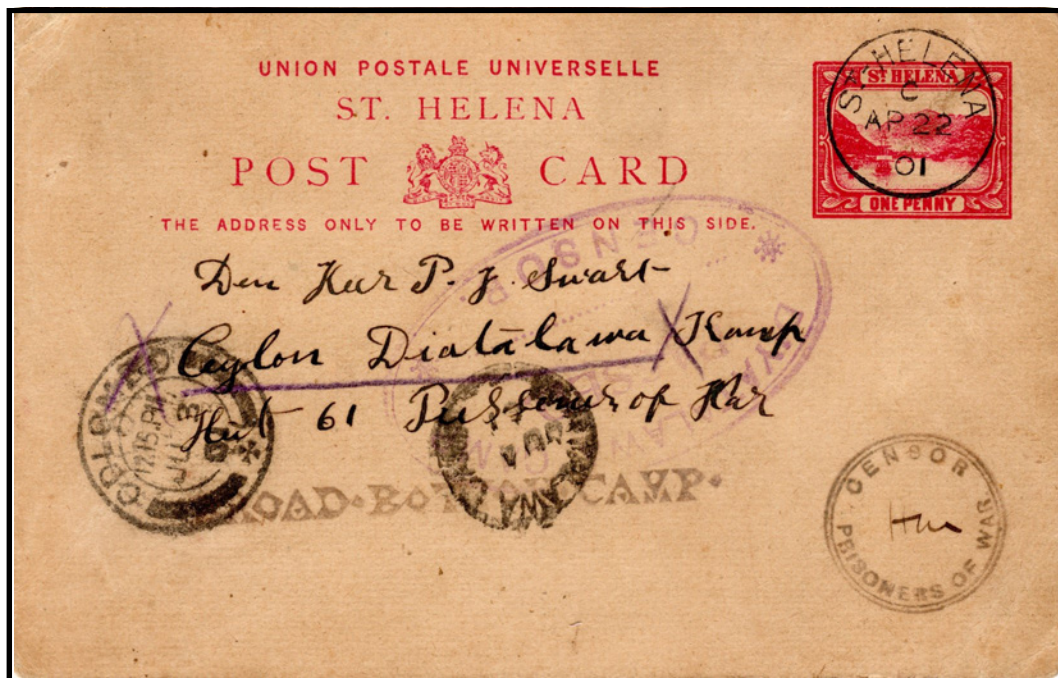 UNION POSTALE UNIVERSELLE
ST. HELENA
POST CARD
THE ADDRESS ONLY TO BE WRITTEN ON THIS SIDE.
ST. HELENA
ONE PENNY
ST. HELENA
C
AP 22
01
Den Heer P. J. Swart
Ceylon Diatalawa Kamp
Hut 61 Prissoner of War
CENSOR
DIYATALAWA
CAMP
COLOMBO
12.15.PM
JU
ROAD·BOTTOM·CAMP·
CENSOR
PRISONERS OF WAR